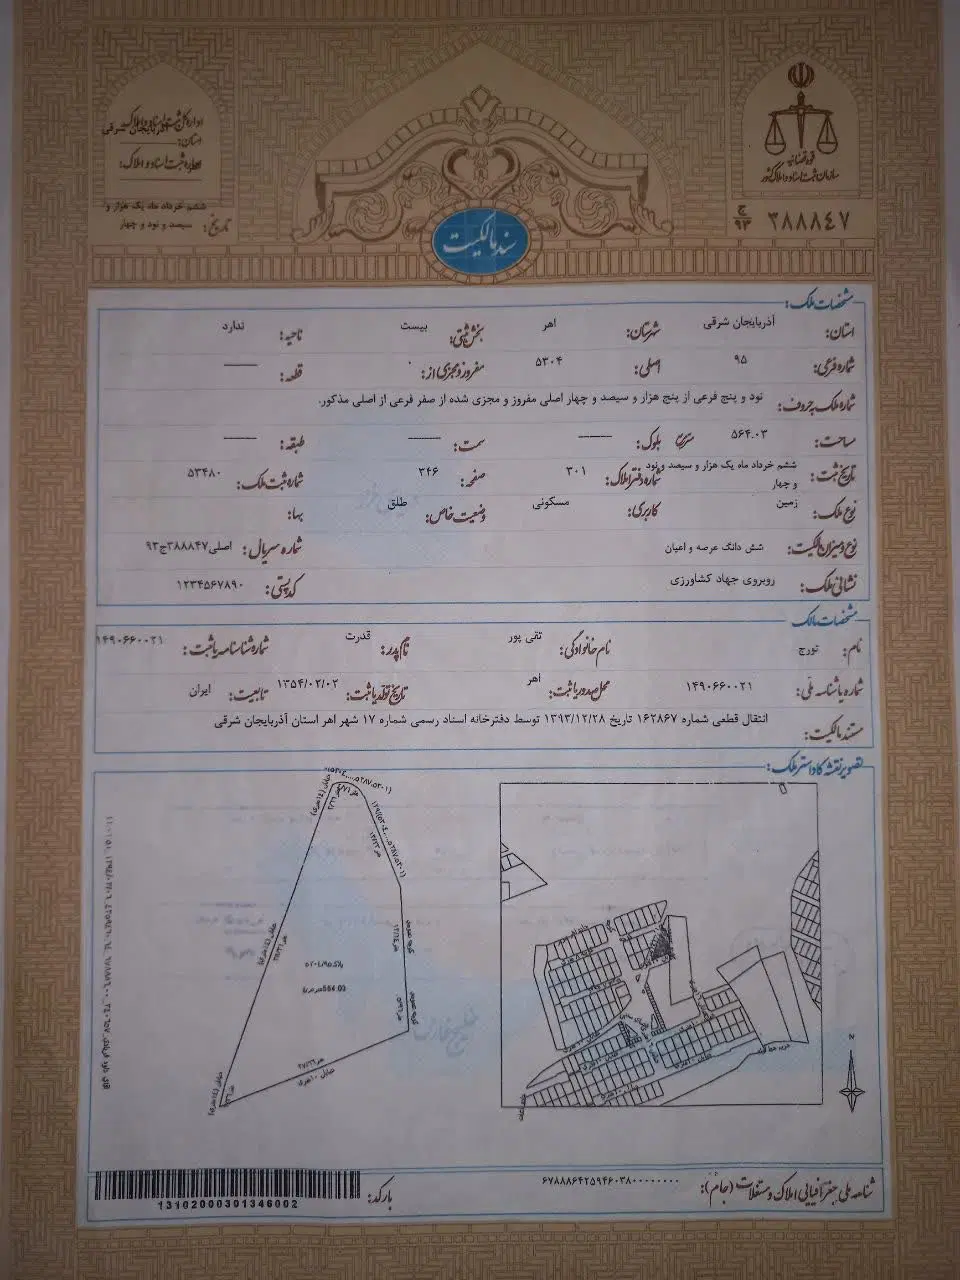 قوه قضائیه
سازمان ثبت اسناد و املاک کشور
۳۸۸۸۴۷ ج ۹۳
اداره کل ثبت اسناد و املاک
استان: آذربایجان شرقی
اداره ثبت اسناد و املاک:
تاریخ: ششم خرداد ماه یک هزار و سیصد و نود و چهار
سند مالکیت
مشخصات ملک:
استان: آذربایجان شرقی شهرستان: اهر بخش ثبتی: بیست ناحیه: ندارد
شماره فرعی: ۹۵ اصلی: ۵۳۰۴ مفروز و مجزی از: ۰ قطعه: ——
شماره ملک به حروف: نود و پنج فرعی از پنج هزار و سیصد و چهار اصلی مفروز و مجزی شده از صفر فرعی از اصلی مذکور.
مساحت: ۵۶۴.۰۳ بلوک: —— سمت: —— طبقه: ——
تاریخ ثبت: ششم خرداد ماه یک هزار و سیصد و نود و چهار شماره دفتر املاک: ۳۰۱ صفحه: ۳۴۶ شماره ثبت ملک: ۵۳۴۸۰
نوع ملک: زمین کاربری: مسکونی وضعیت خاص: طلق بها:
نوع و میزان مالکیت: شش دانگ عرصه و اعیان شماره سریال: اصلی۳۸۸۸۴۷ج۹۳
نشانی ملک: روبروی جهاد کشاورزی کد پستی: ۱۲۳۴۵۶۷۸۹۰
مشخصات مالک
نام: تورج نام خانوادگی: تقی پور نام پدر: قدرت شماره شناسنامه یا ثبت: ۱۴۹۰۶۶۰۰۲۱
شماره یا شناسه ملی: ۱۴۹۰۶۶۰۰۲۱ محل صدور یا ثبت: اهر تاریخ تولد یا ثبت: ۱۳۵۴/۰۲/۰۲ تابعیت: ایران
مستند مالکیت: انتقال قطعی شماره ۱۶۲۸۶۷ تاریخ ۱۳۹۳/۱۲/۲۸ توسط دفترخانه اسناد رسمی شماره ۱۷ شهر اهر استان آذربایجان شرقی
تصویر نقشه کاداستر ملک:
خیابان ۱۰ متری
N
شناسه ملی جغرافیایی املاک و مستغلات (جام): ۶۷۸۸۸۶۴۲۵۹۴۶۰۳۸۰۰۰۰۰۰۰۰۰
بارکد:
13102000301346002